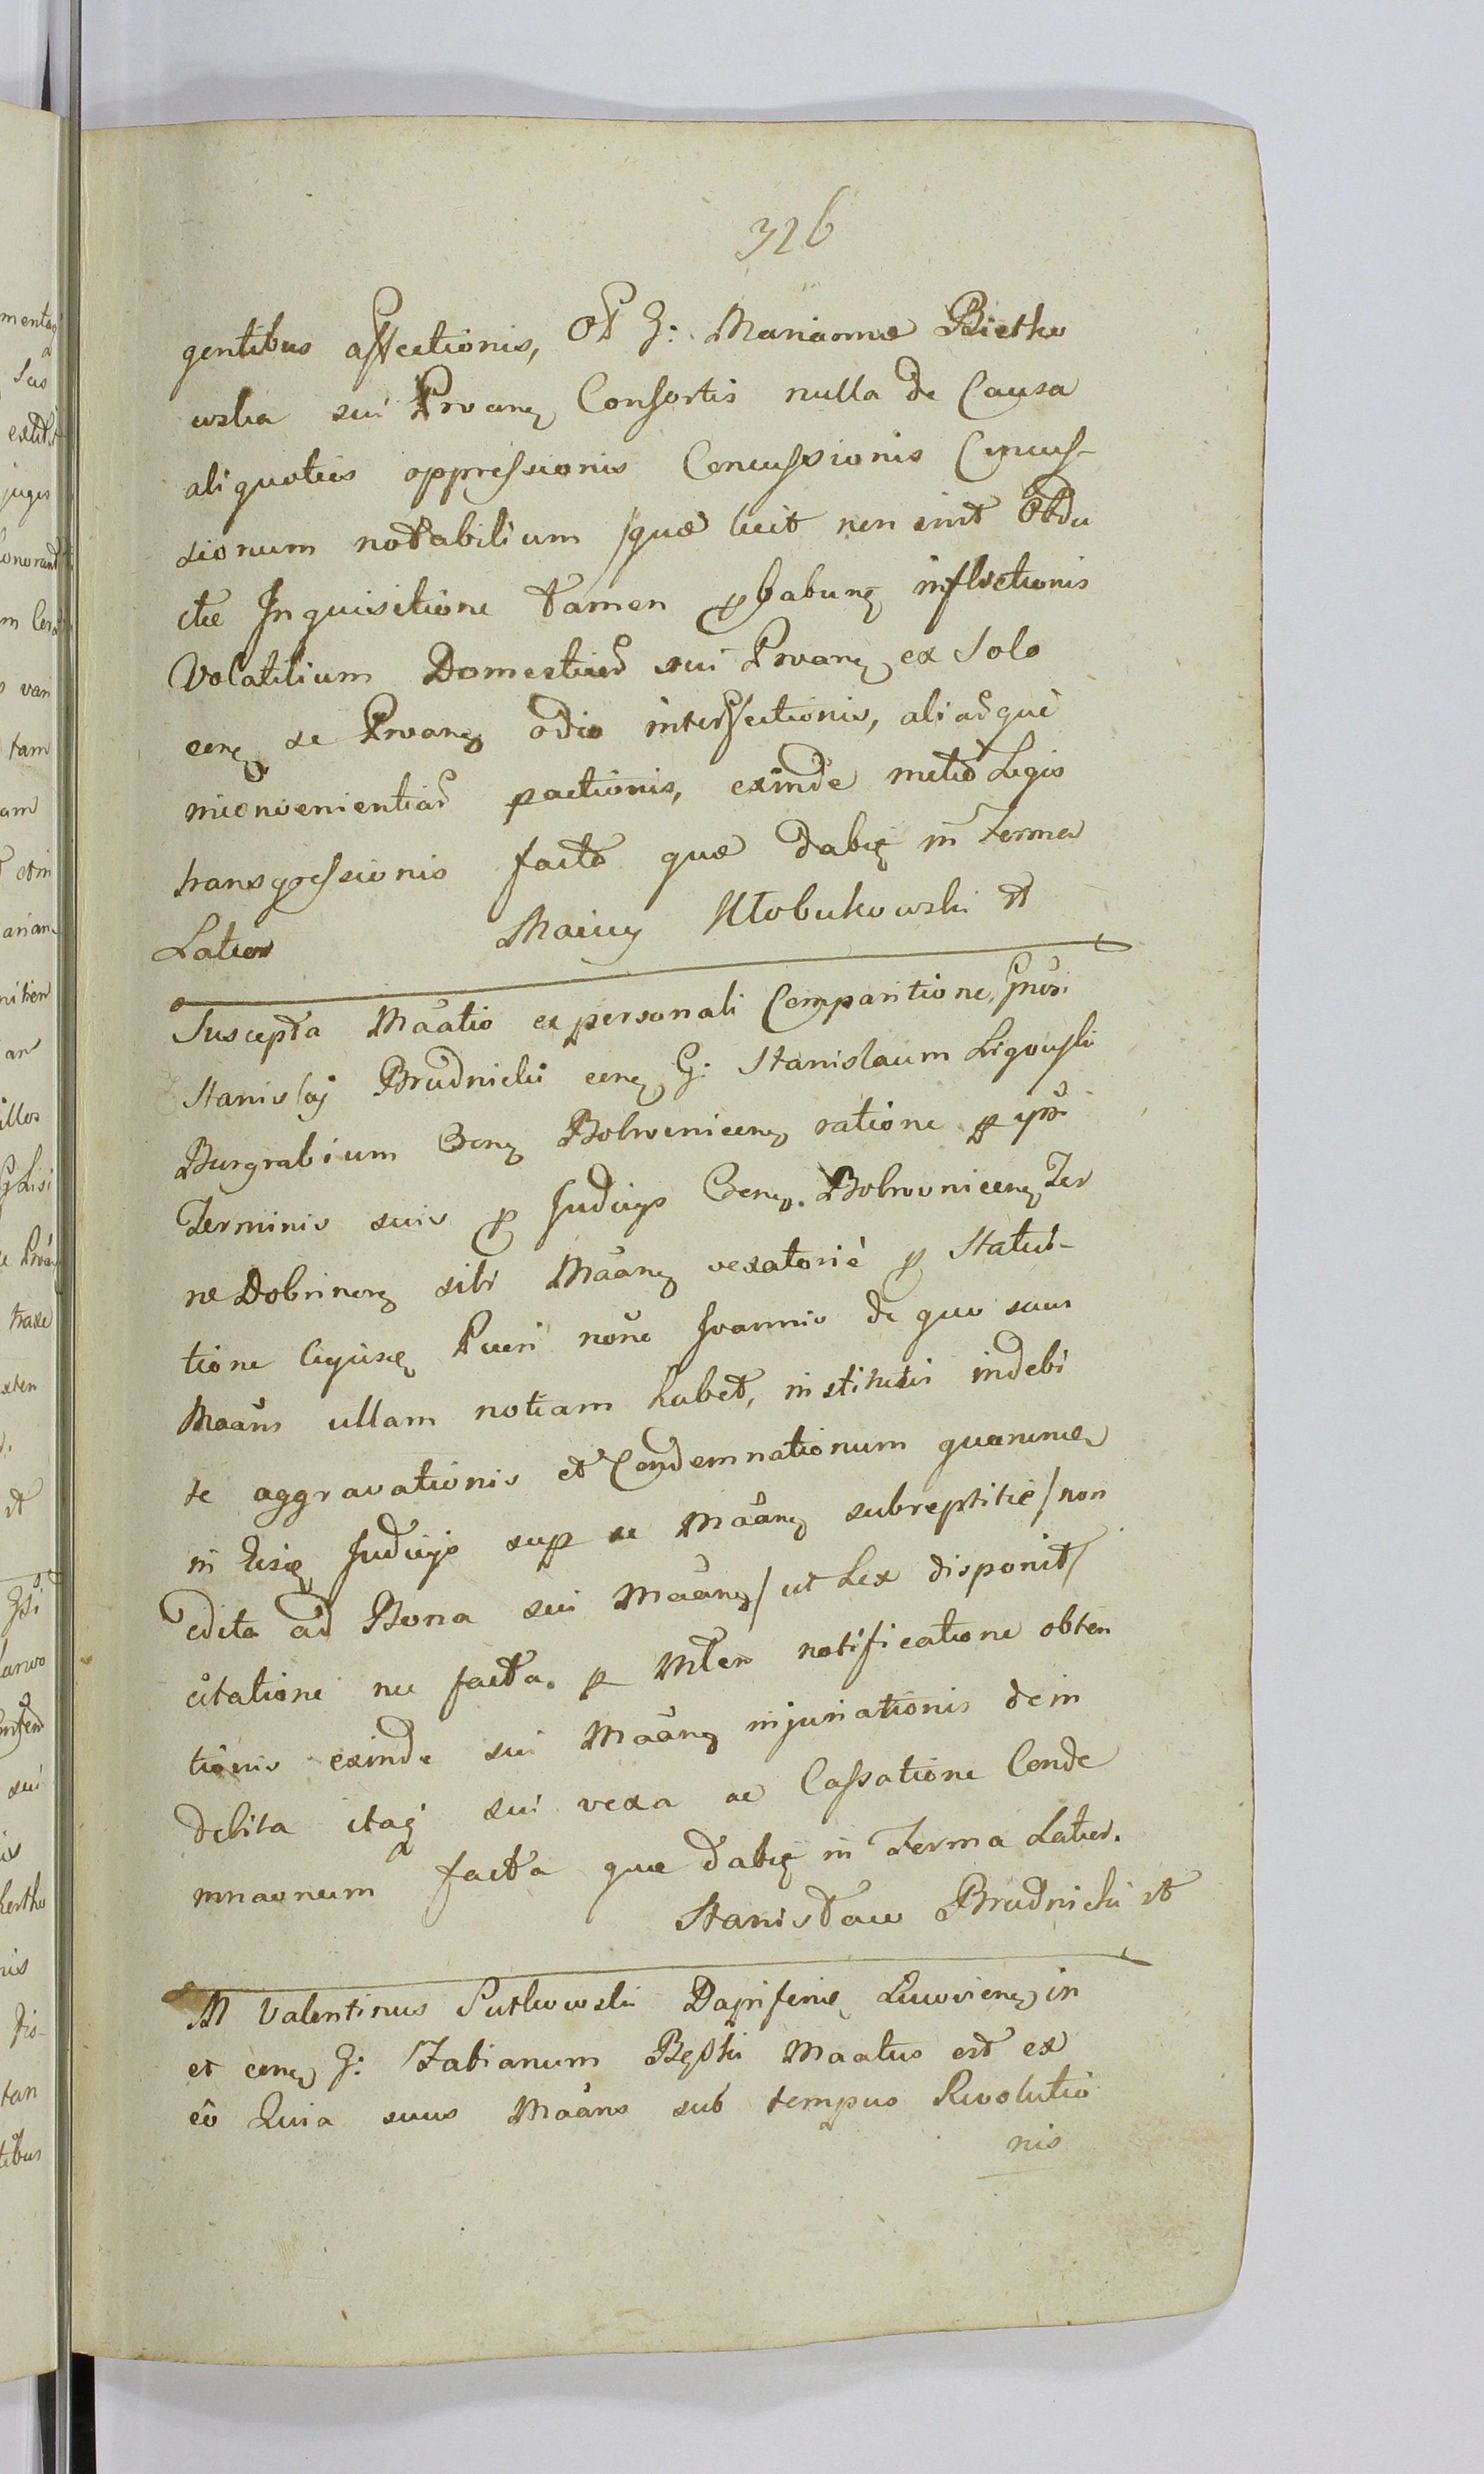 326
gentibus affectionis, Et G: Mariannæ Bietko
wska sui Prvang Consortis nulla de Causa
aliquoties oppressionis Concussionis Concus-
sionum notabilium /quæ licet non sint Obdu
ctæ Inquisitione tamen pbabung inflictionis
Volatilium Domestico sui Prvang ex Solo
cong se Prvang odio interfectionis, aliasque
inconvenientias pactionis, exinde metio Legis
transgressionis facto quæ dabit in Termo
Latior Maiug Kłobukowski et
Suscepta Maatio ex personali Comparitione, Gnosi
Stanislaj Brudnicki cong G: Stanislaum Ligowski
Burgrabium Beng Bobrvniceng ratione p ipso
Terminis suis p Judicys Beng. Bobrovniceng Ter
ræ Dobrineng sibi Maang vexatorie p Statui-
tione Cujusq Pueri none Joannis de quo suus
Maans ullam notiam habet, institutis indebi
te aggravationis et Condemnationum quarumq
in Eisq Judicys sup se Maang subreptitie /non
edita ad Bona sui Maang/ ut Lex disponit/
citatione nec facta. p Mlem notificatione obten
tionis exinde sui Maang injuriationis dein
debita itaq sui vexa ac Cassatione Conde
mnaonum facta quæ dabit in Termo Latior.
Stanisław Brudnicki et
M Valentinus Sutkowski Dapiferiq Luvovieng in
et cong G: Fabianum Bęski Maatus est ex
eo Quia suus Maans sub tempus Revolutio
nis